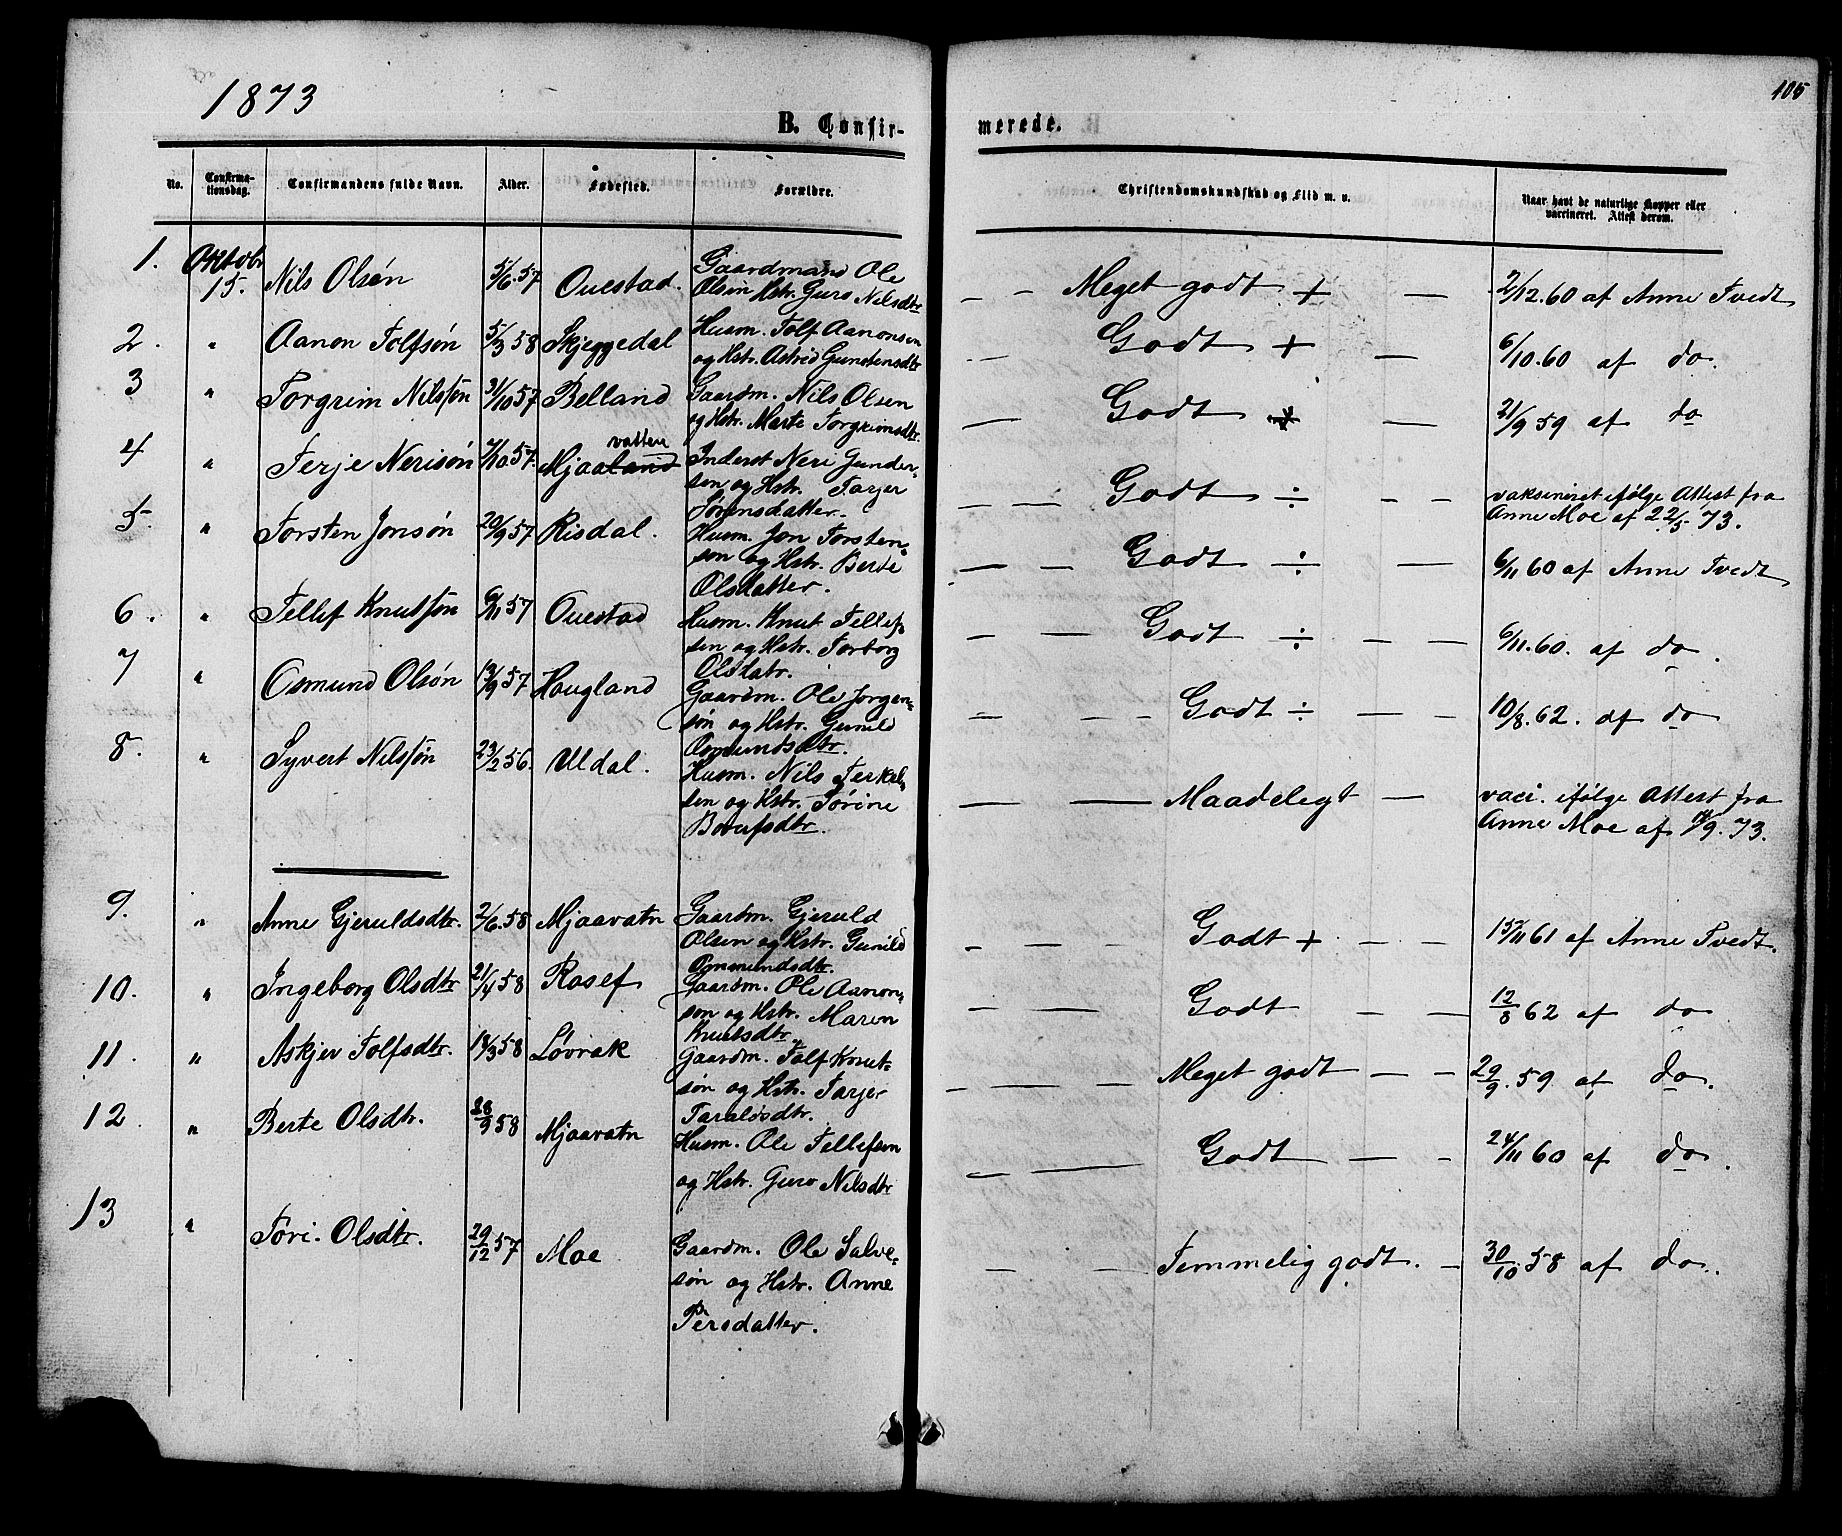 1873
105
B. Confir-
merede.
No.
Confirma-
tionsdag.
Confirmandens fulde Navn.
Alder.
Fødested.
Forældre.
Christendomskundskab og Flid m. v.
Naar havt de naturlige Kopper eller
vaccineret. Attest derom.
1. Oktobr 15. Nils Olsön 5/6.57 Ouestad. Gaardmand Ole
Olsön Hstr. Guro Nilsdtr
— — Meget godt + — 2/12.60 af Anne Tvedt
2. " Aanon Tolfsön 5/3 58 Skjeggedal Husm. Tolf Aanonsen
og Hstr. Astrid Gundensdtr
— Godt + — 6/10.60 af do.
3 " Torgrim Nilssön 31/10 57 Belland Gaardm. Nils Olsen
og Hstr. Marte Torgrimsdtr.
— Godt + — 21/9 59 af do
vatten
4 " Terje Nerisön 7/10 57. Mjaaland Inderst Neri Gunder-
sen og Hstr. Tarjer
Sörensdatter.
— — Godt ÷ — — vaksineret ifölge Attest fra
Anne Moe af 22/5. 73.
5. " Torsten Jonsön 20/9 57 Risdal. Husm. Jon Torsten-
son og Hstr. Berte
Olsdatter.
— — Godt ÷ — 6/11 60 af Anne Tvedt
6. " Tellef Knutsön 6/11 57 Ouestad Husm. Knut Tellef-
sen og Hstr. Torborg
Olsdatr.
— — Godt ÷ — — 6/11.60. af do.
7 " Osmund Olsön 13/9 57 Haugland Gaardm. Ole Jorgen-
sön og Hstr. Gunild
Osmundsdtr.
— — — Godt ÷ — — 10/8.62. af do
8. " Syvert Nilssön 23/2 56. Uldal. Husm. Nils Terkel-
sen og Hstr. Torine
— — Maadelegt — vaci. ifölge Attest fra
Anne Moe af 14/9. 73.
9. " Anne Gjeruldsdtr. 2/6.58 Mjaavatn Gaardm. Gjeruld
Olsen og Hstr. Gunild
Ommundsdtr.
— — — Godt + — — 15/11 61 af Anne Tvedt.
10. " Ingeborg Olsdtr 21/4 58 Rosef Gaardm. Ole Aanon-
son og Hstr. Maren
Knutsdtr.
— — Godt — — 12/8 62 af do
11. " Askjer Tolfsdtr. 18/3 58 Lövrak Gaardm. Tolf Knut-
sön og Hstr. Tarjer
Taraldsdtr.
— — — Meget godt — — 29/9.59 af do.
12. " Berte Olsdtr. 28/9 58 Mjaavatn Husm. Ole Tellefsen
og Hstr. Guro Nilsdtr
— — Godt — — 24/11 60 af do.
13 " Tori. Olsdtr. 29/12 57 Moe Gaardm. Ole Salve-
sön og Hstr. Anne
Persdatter.
— — Temmelig godt. — 30/10.58 af do.